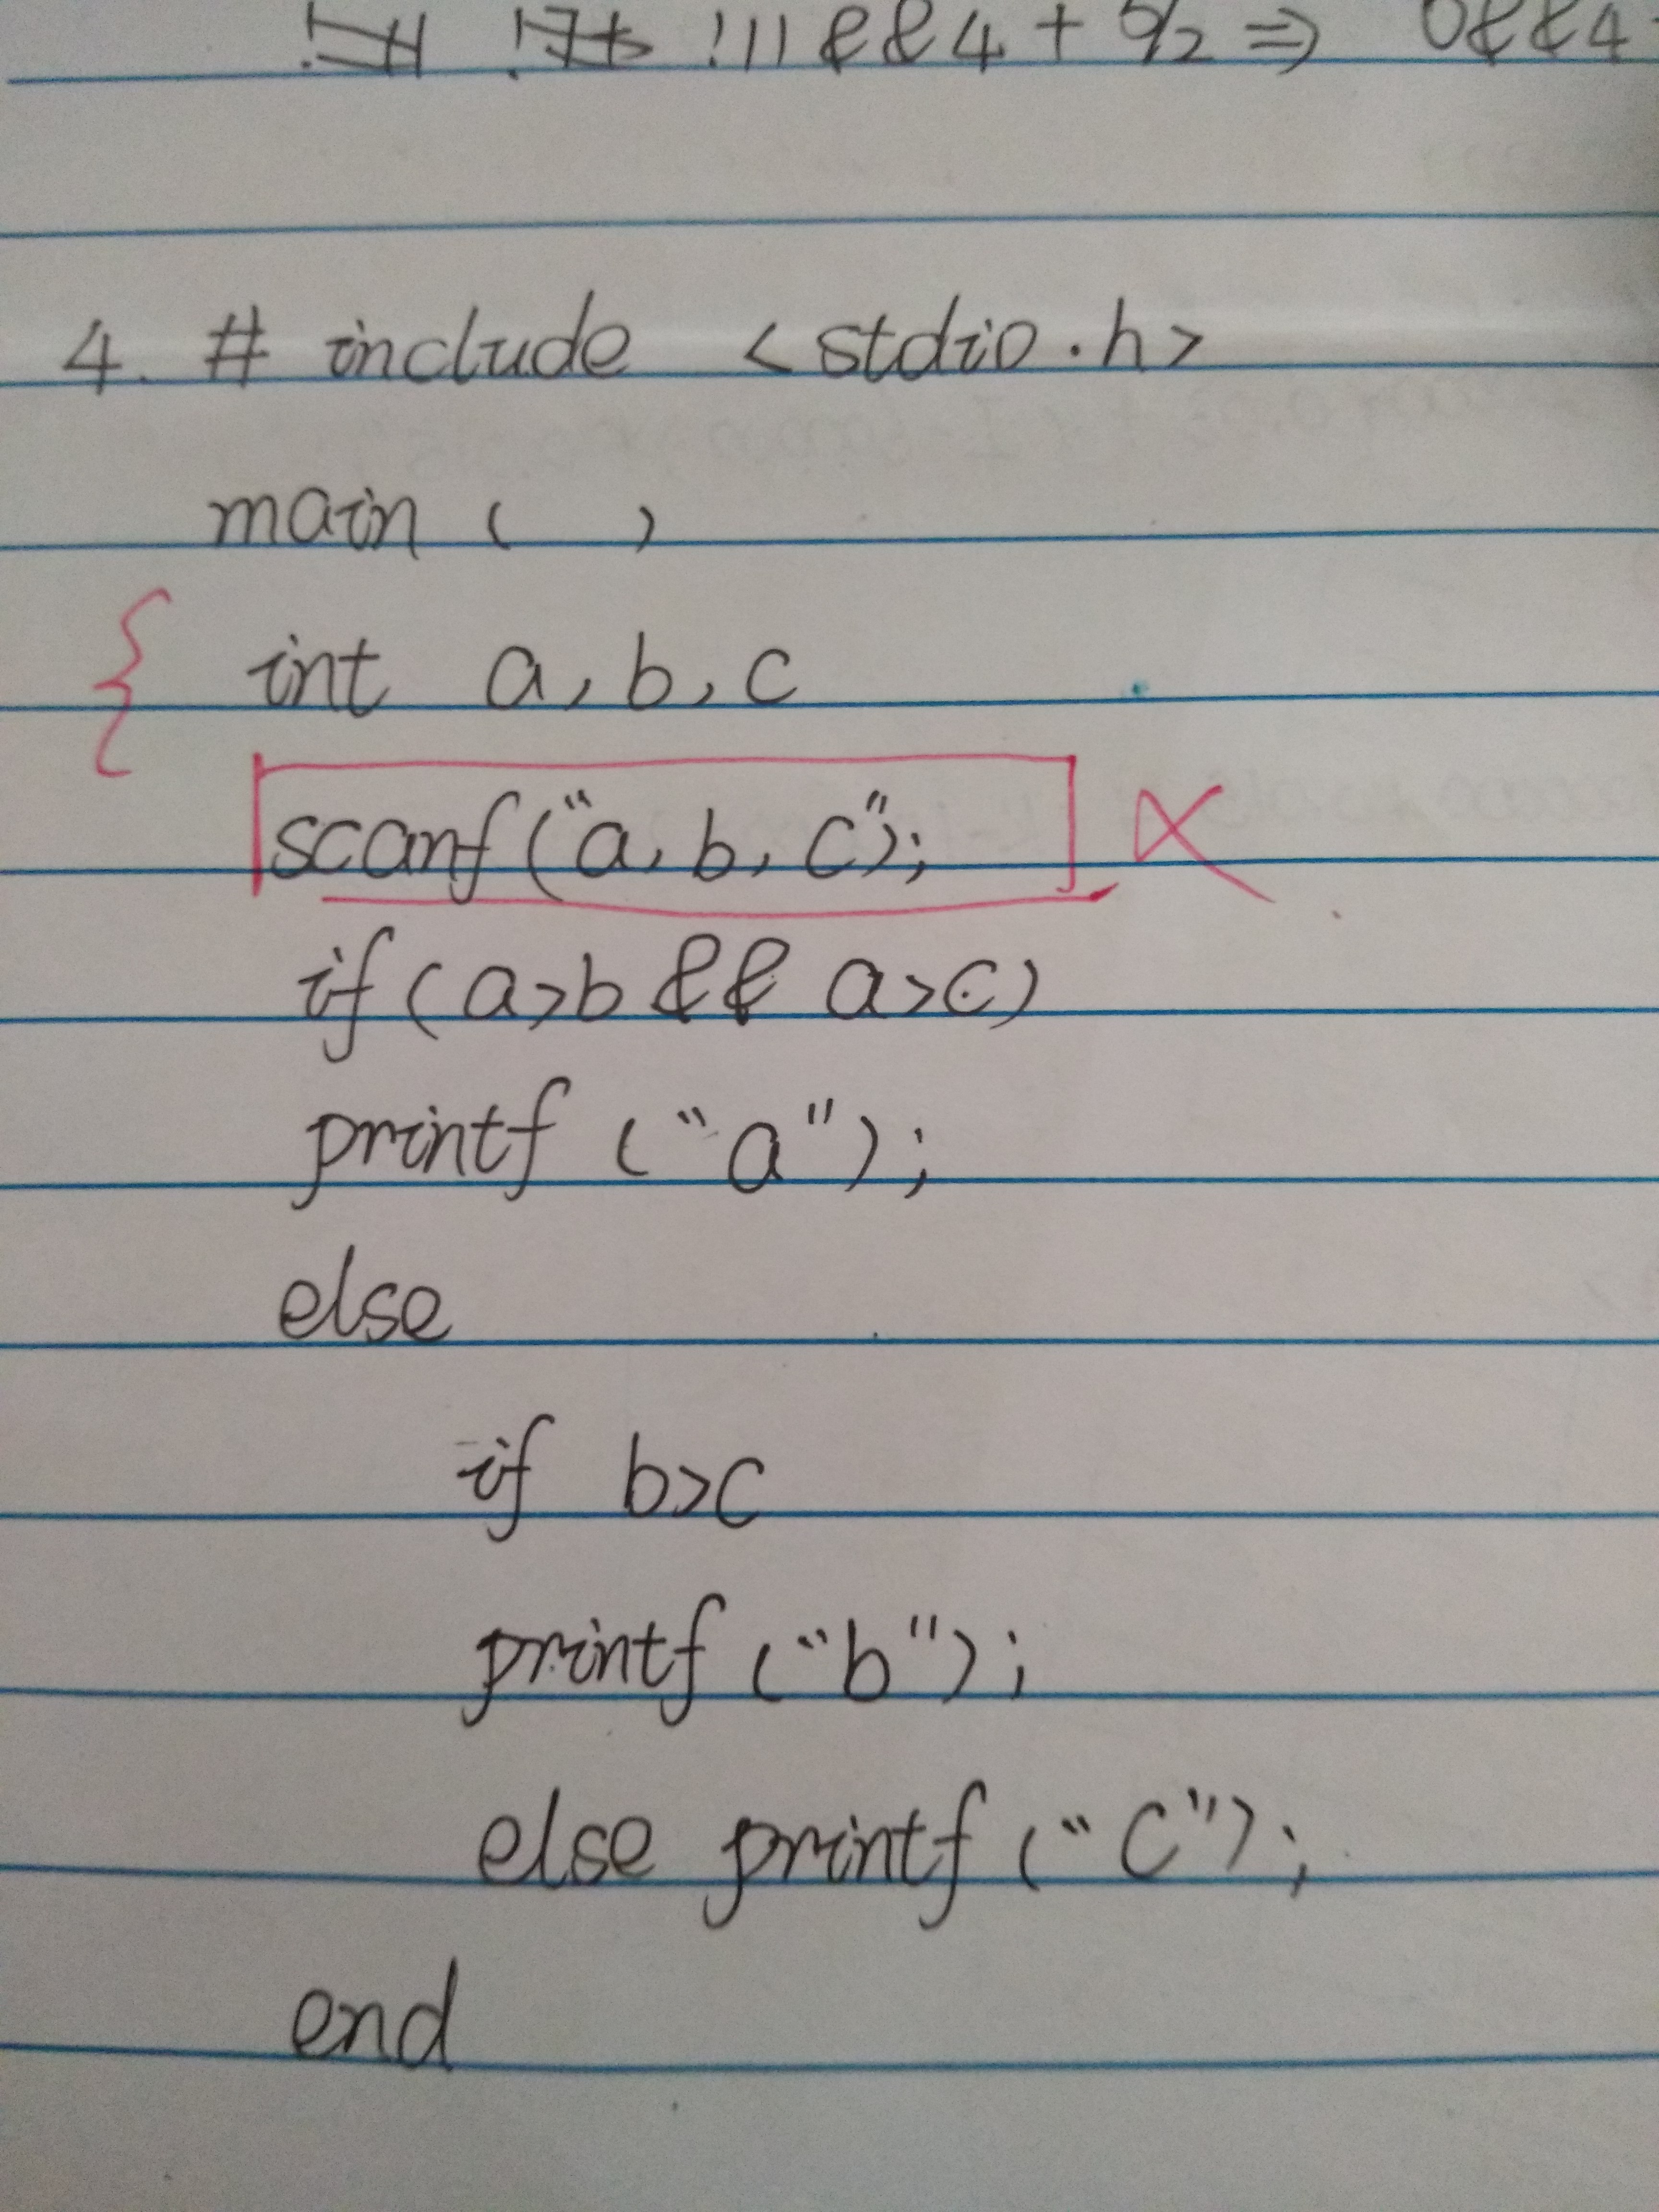 !11&&4+5/2⇒ 0&&4
4. # include <stdio.h>
main ( )
{ int a, b, c
scanf("a, b, c"); ×
if (a>b && a>c)
printf ("a");
else
if b>c
printf ("b");
else printf ("c");
end